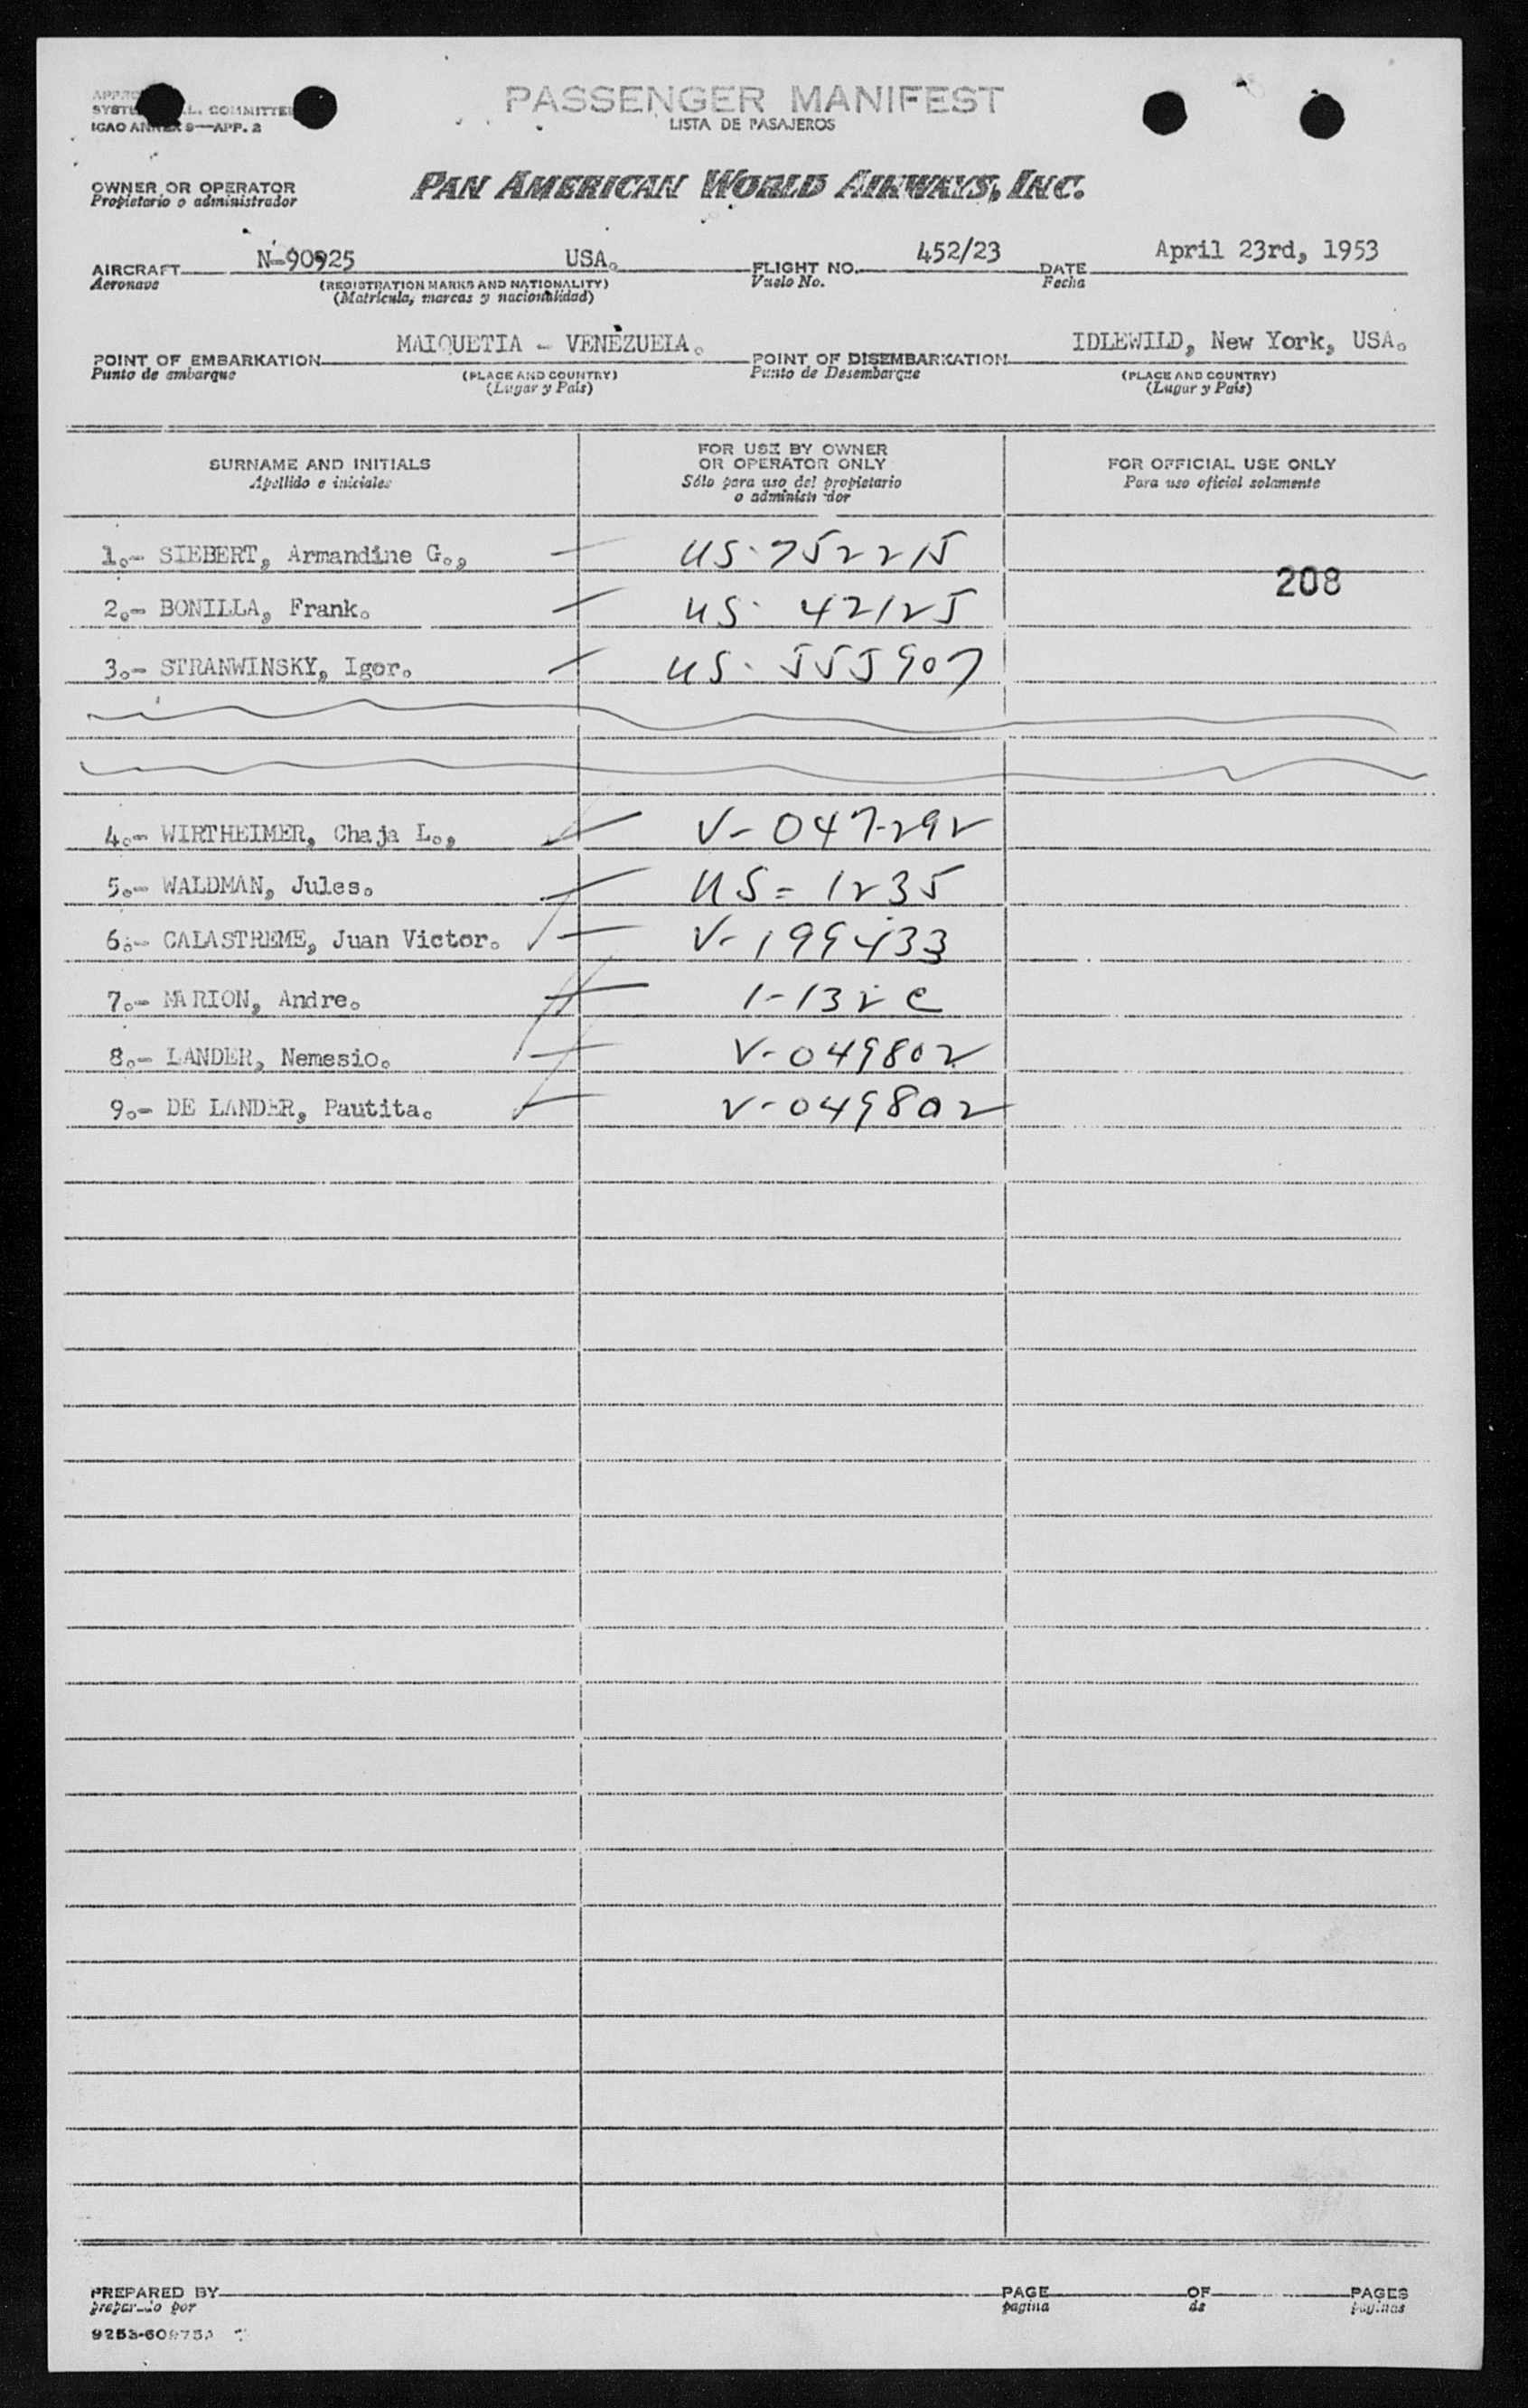 PASSENGER MANIFEST
LISTA DE PASAJEROS
L. COMMITTEE
ICAO ANNEX 9—APP. 2
OWNER OR OPERATOR
Propietario o administrador
PAN AMERICAN WORLD AIRWAYS, INC.
AIRCRAFT N-90925 USA. FLIGHT NO. 452/23 DATE April 23rd, 1953
Aeronave (REGISTRATION MARKS AND NATIONALITY) Vuelo No. Fecha
(Matrícula, marcas y nacionalidad)
POINT OF EMBARKATION MAIQUETIA - VENEZUELA. POINT OF DISEMBARKATION IDLEWILD, New York, USA.
Punto de embarque (PLACE AND COUNTRY) Punto de Desembarque (PLACE AND COUNTRY)
(Lugar y País) (Lugar y País)
SURNAME AND INITIALS
Apellido e iniciales
FOR USE BY OWNER
OR OPERATOR ONLY
Sólo para uso del propietario
o administrador
FOR OFFICIAL USE ONLY
Para uso oficial solamente
1.- SIEBERT, Armandine G., US-752215
208
2.- BONILLA, Frank. US- 42125
3.- STRANWINSKY, Igor. US- 555907
4.- WIRTHEIMER, Chaja L., V-047292
5.- WALDMAN, Jules. US- 1235
6.- CALASTREME, Juan Victor. V-199433
7.- MARION, Andre. 1-132 C
8.- LANDER, Nemesio. V-049802
9.- DE LANDER, Pautita. V-049802
PREPARED BY PAGE OF PAGES
preparado por pagina de páginas